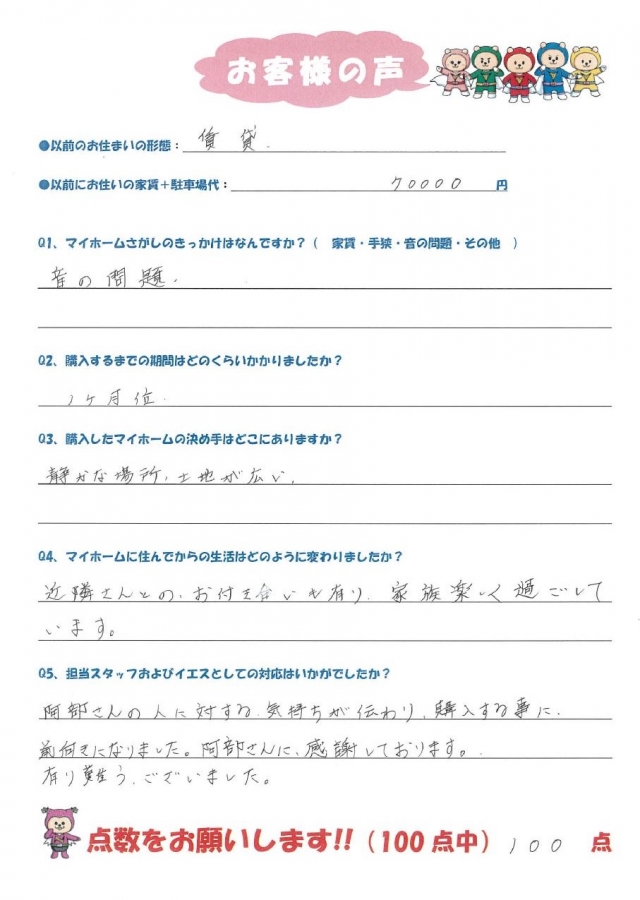 お客様の声
●以前のお住まいの形態： 賃貸.
●以前にお住いの家賃＋駐車場代： 70000 円
Q1、マイホームさがしのきっかけはなんですか？（ 家賃・手狭・音の問題・その他 ）
音の問題.
Q2、購入するまでの期間はどのくらいかかりましたか？
1ヶ月位.
Q3、購入したマイホームの決め手はどこにありますか？
静かな場所、土地が広い.
Q4、マイホームに住んでからの生活はどのように変わりましたか？
近隣さんとの、お付き合いも有り、家族楽しく過ごして
います。
Q5、担当スタッフおよびイエスとしての対応はいかがでしたか？
阿部さんの人に対する、気持ちが伝わり、購入する事に、
前向きになりました。阿部さんに、感謝しております。
有り難う、ございました。
点数をお願いします!!（100点中） 100 点